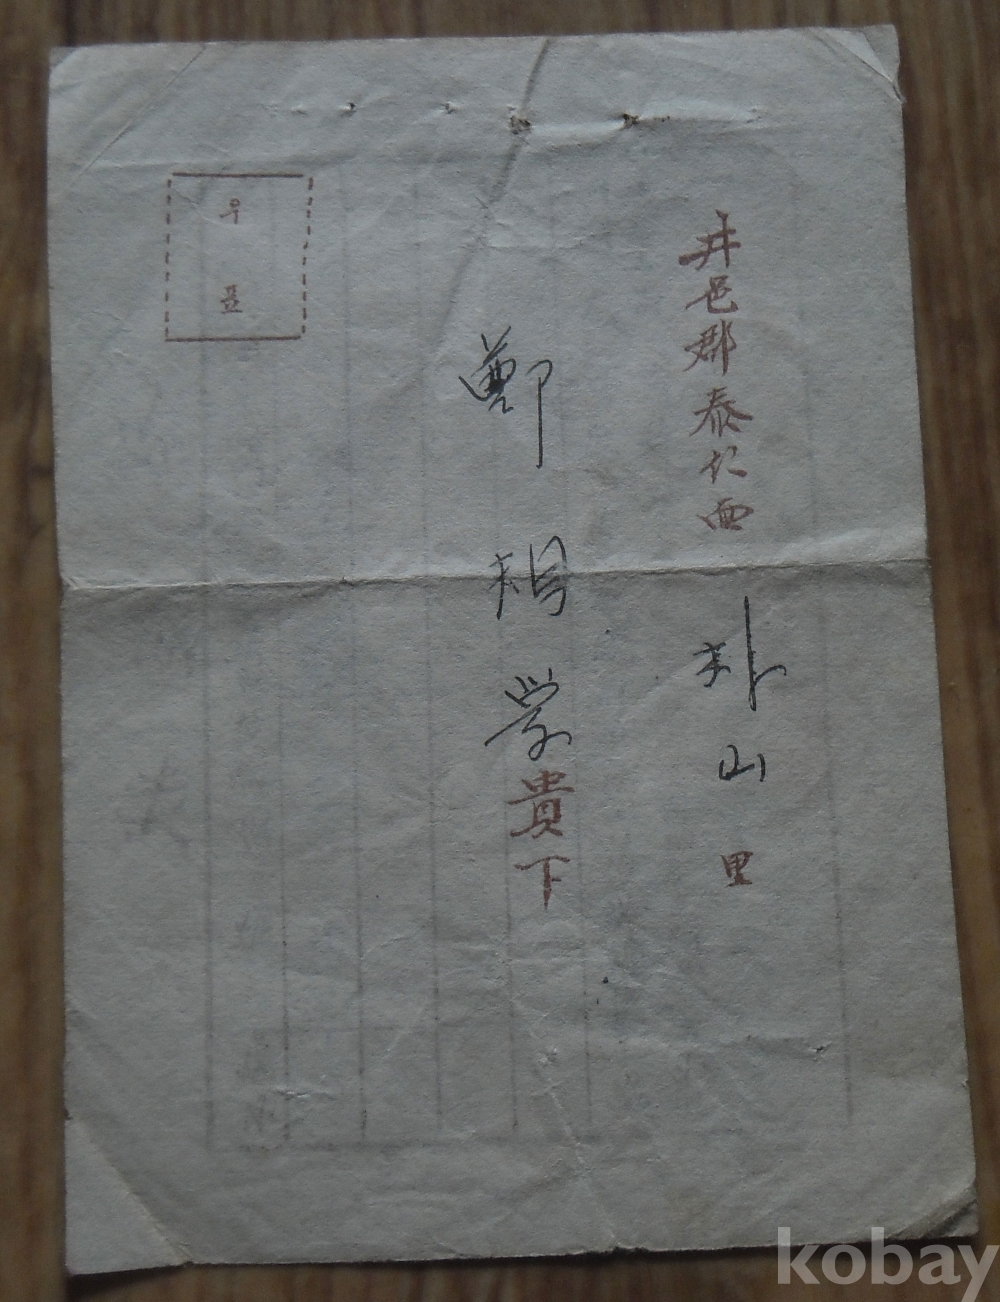 井邑郡泰仁面 朴山里
鄭 규 学 貴下
우표
kobay